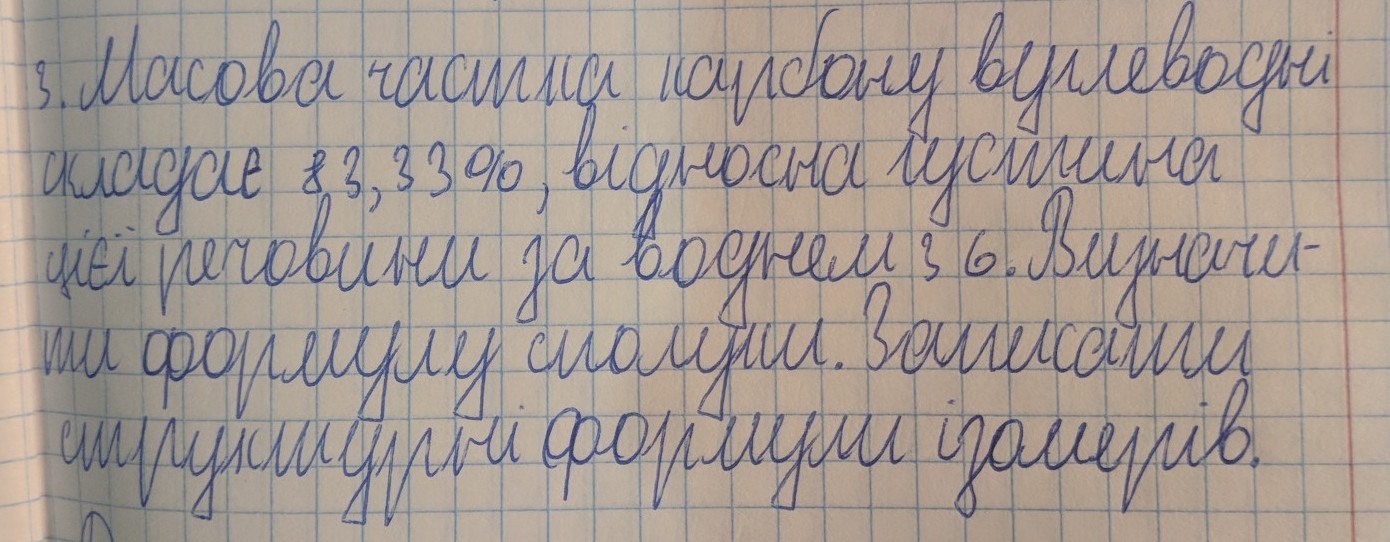 3. Масова частка карбону вуглеводні
складає 83,33%, відносна густина
цієї речовини за воднем 36. Визначи-
ти формулу сполуки. Записати
структурні формули ізомерів.